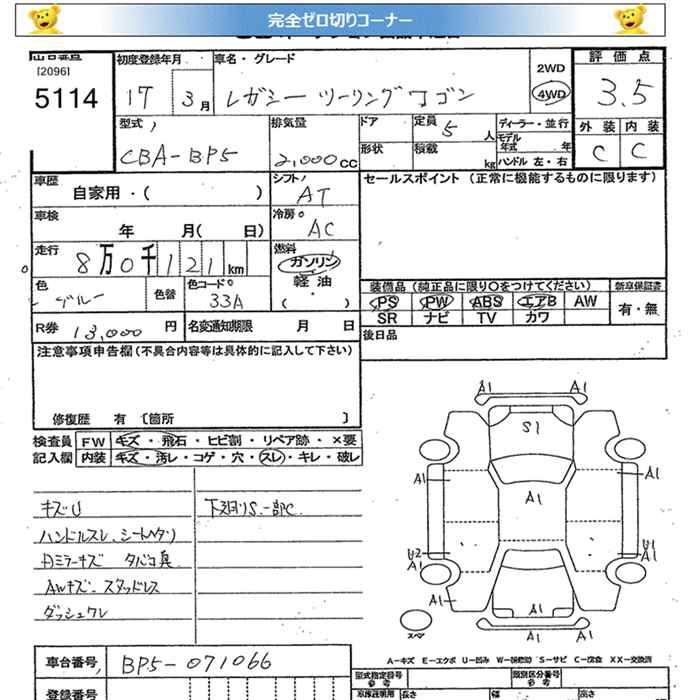 完全ゼロ切りコーナー
[2096]
5114
初度登録年月
17 3月
車名・グレード
レガシー ツーリングワゴン
2WD
4WD
評価点
3.5
外装 内装
C C
型式
CBA-BP5
排気量
2,000cc
ドア
形状
定員 5人
積載 kg
ディーラー・並行
モデル年式 年
ハンドル 左・右
車歴
自家用・( )
シフト
AT
車検
年 月( 日)
冷房
AC
走行
8万0千121km
燃料
ガソリン
軽油
( ・ )
色
ブルー
色替
色コードo
33A
R券 13,000円
名変通知期限 月 日
セールスポイント (正常に機能するものに限ります)
装備品(純正品に限り〇をつけてください)
新車保証書
PS PW ABS エアB AW
SR ナビ TV カワ
有・無
後日品
注意事項申告欄(不具合内容等は具体的に記入して下さい)
修復歴 有 〔箇所 〕
検査員 FW キズ・飛石・ヒビ割・リペア跡・×要
記入欄 内装 キズ・汚レ・コゲ・穴・スレ・キレ・破レ
キズU
下廻りS.一部C
ハンドルスレ、シートヘタリ
内ミラーキズ タバコ臭
AWキズ. スタッドレス
ダッシュワレ
A1 A1
S1
A1
A1
A1
U2
A1
U1
A1
A1
A1
A1
スペア
A-キズ E-エクボ U-凹み W-補修跡 S-サビ C-腐食 XX-交換済
車台番号 BP5-071066
登録番号
型式指定番号
参考
類別区分番号
参考
車庫証明用 長さ 幅 高さ